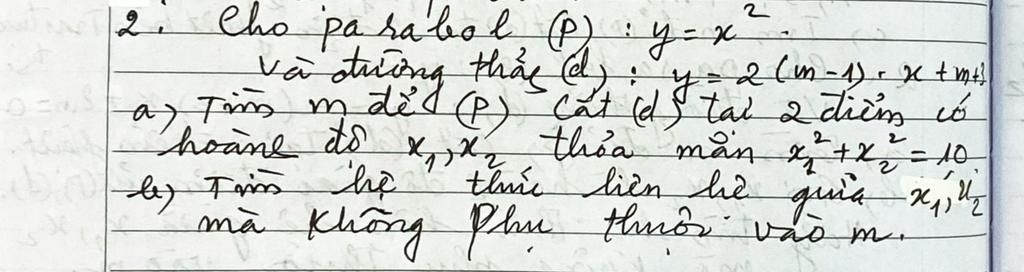 2. Cho parabol (P) : y = x².
Và đường thẳg (d) : y = 2(m-1).x + m+3
a, Tìm m để (P) cắt (d) tại 2 điểm có
hoành độ x₁, x₂ thỏa mãn x₁² + x₂² = 10
b, Tìm hệ thức liên hệ giữa x₁, x₂
mà không phụ thuộc vào m.